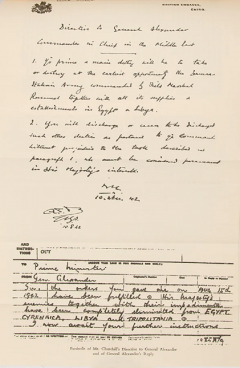 BRITISH EMBASSY,
CAIRO.
Directive to General Alexander
Commander in Chief in the Middle East
1. Yr prime & main duty will be to take
or destroy at the earliest opportunity the German-
Italian Army commanded by Field Marshal
Rommel together with all its supplies &
establishments in Egypt & Libya.
2. You will discharge or cause to be discharged
such other duties as pertain to yr Command
without prejudice to the task described in
paragraph 1, wh must be considered paramount
in His Majesty's interests.
10. Aug. 42
OUT
TO Prime Minister
From Gen. Alexander
Sir, the orders you gave me on Aug 15th
1942 have been fulfilled. His Majesty's
enemies together with their impedimenta
have been completely eliminated from EGYPT
CYRENAICA LIBYA and TRIPOLITANIA.
I now await your further instructions.
Facsimile of Mr. Churchill's Directive to General Alexander
and of General Alexander's Reply